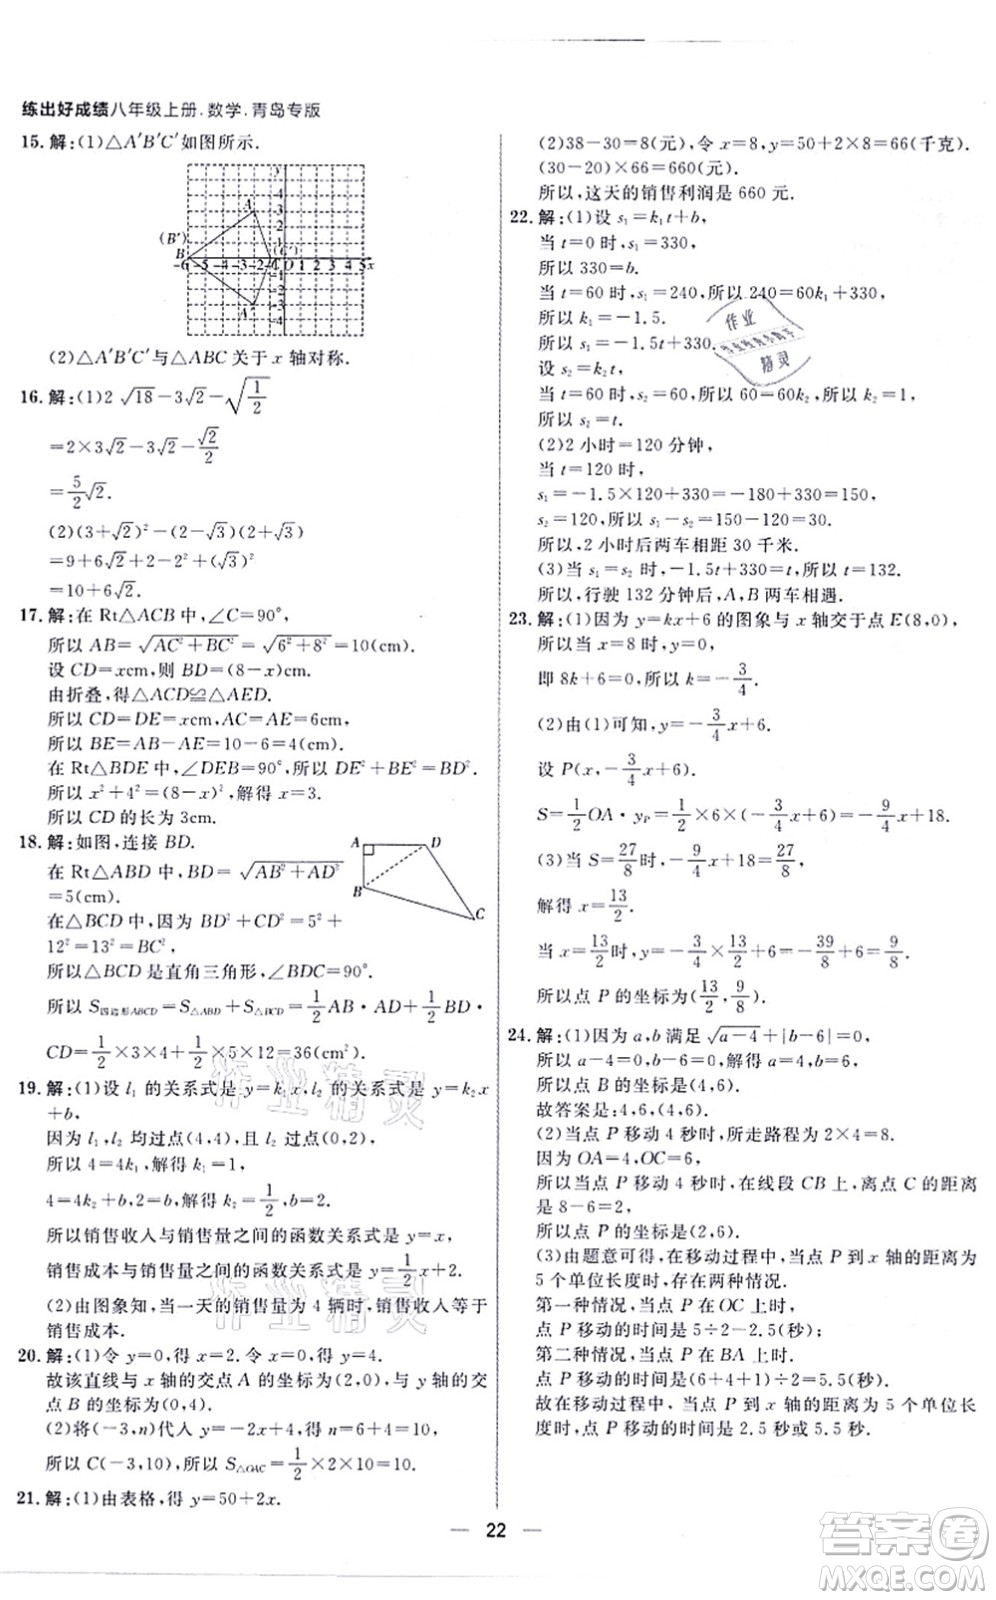 练出好成绩八年级上册.数学.青岛专版
15.解:(1)△A′B′C′如图所示.
y
4
3
2
1
A′
(B′)
B
(C′)
-6 -5 -4 -3 -2 -1 O 1 2 3 4 5 x
-1
-2
-3
-4
A
(2)△A′B′C′与△ABC关于x轴对称.
16.解:(1)2√18-3√2-√(1/2)
=2×3√2-3√2-√2/2
=5/2√2.
(2)(3+√2)²-(2-√3)(2+√3)
=9+6√2+(√2)²-2²+(√3)²
=10+6√2.
17.解:在Rt△ACB中,∠C=90°,
所以AB=√(AC²+BC²)=√(6²+8²)=10(cm).
设CD=xcm,则BD=(8-x)cm.
由折叠,得△ACD≌△AED.
所以CD=DE=xcm,AC=AE=6cm.
所以BE=AB-AE=10-6=4(cm).
在Rt△BDE中,∠BED=90°,所以DE²+BE²=BD².
所以x²+4²=(8-x)²,解得x=3.
所以CD的长为3cm.
18.解:如图,连接BD.
在Rt△ABD中,BD=√(AB²+AD²)
=5(cm).
在△BCD中,因为BD²+CD²=5²+
12²=13²=BC²,
所以△BCD是直角三角形,∠BDC=90°.
A D
B
C
所以S四边形ABCD=S△ABD+S△BCD=1/2AB·AD+1/2BD·
CD=1/2×3×4+1/2×5×12=36(cm²).
19.解:(1)设l₁的关系式是y=k₁x,l₂的关系式是y=k₂x
+b,
因为l₁,l₂均过点(4,4),l₂过点(0,2),
所以4=4k₁,解得k₁=1,
4=4k₂+b,2=b,解得k₂=1/2,b=2.
所以销售收入与销售量之间的函数关系式是y=x,
销售成本与销售量之间的函数关系式是y=1/2x+2.
(2)由图象知,当一天的销售量为4辆时,销售收入等于
销售成本.
20.解:(1)令y=0,得x=2.令x=0,得y=4.
故该直线与x轴的交点A的坐标为(2,0),与y轴的交
点B的坐标为(0,4).
(2)将(-3,n)代人y=-2x+4,得n=6+4=10.
所以C(-3,10),所以S△OAC=1/2×2×10=10.
21.解:(1)由表格,得y=50+2x.
(2)38-30=8(元),令x=8,y=50+2×8=66(千克).
(30-20)×66=660(元).
所以,这天的销售利润是660元.
22.解:(1)设s₁=k₁t+b,
当t=0时,s₁=330,
所以330=b.
当t=60时,s₁=240,所以240=60k₁+330,
所以k₁=-1.5.
所以s₁=-1.5t+330.
设s₂=k₂t,
当t=60时,s₂=60,所以60=60k₂,所以k₂=1,
所以s₂=t.
(2)2小时=120分钟,
当t=120时,
s₁=-1.5×120+330=-180+330=150,
s₂=120,所以s₁-s₂=150-120=30.
所以,2小时后两车相距30千米.
(3)当s₁=s₂时,-1.5t+330=t,所以t=132.
所以,行驶132分钟后,A,B两车相遇.
23.解:(1)因为y=kx+6的图象与x轴交于点E(8,0),
所以当x=8时,y=0,
即8k+6=0,所以k=-3/4.
(2)由(1)可知,y=-3/4x+6.
设P(x,-3/4x+6).
S=1/2OA·yP=1/2×6×(-3/4x+6)=-9/4x+18.
(3)当S=27/8时,-9/4x+18=27/8,
解得x=13/2.
当x=13/2时,y=-3/4×13/2+6=-39/8+6=9/8.
所以点P的坐标为(13/2,9/8).
24.解:(1)因为a,b满足√(a-4)+|b-6|=0,
所以a-4=0,b-6=0,解得a=4,b=6,
所以点B的坐标是(4,6).
故答案是:4,6,(4,6).
(2)当点P移动4秒时,所走路程为2×4=8.
因为OA=4,OC=6,
所以当点P移动4秒时,在线段CB上,离点C的距离
是8-6=2,
所以点P的坐标是(2,6).
(3)由题意可得,在移动过程中,当点P到x轴的距离为
5个单位长度时,存在两种情况.
第一种情况,当点P在OC上时,
点P移动的时间是5÷2=2.5(秒);
第二种情况,当点P在BA上时,
点P移动的时间是(6+4+1)÷2=5.5(秒).
故在移动过程中,当点P到x轴的距离为5个单位长
度时,点P移动的时间是2.5秒或5.5秒.
作业
精灵
作业精灵
作业精灵
22
答案圈
MXQE.COM